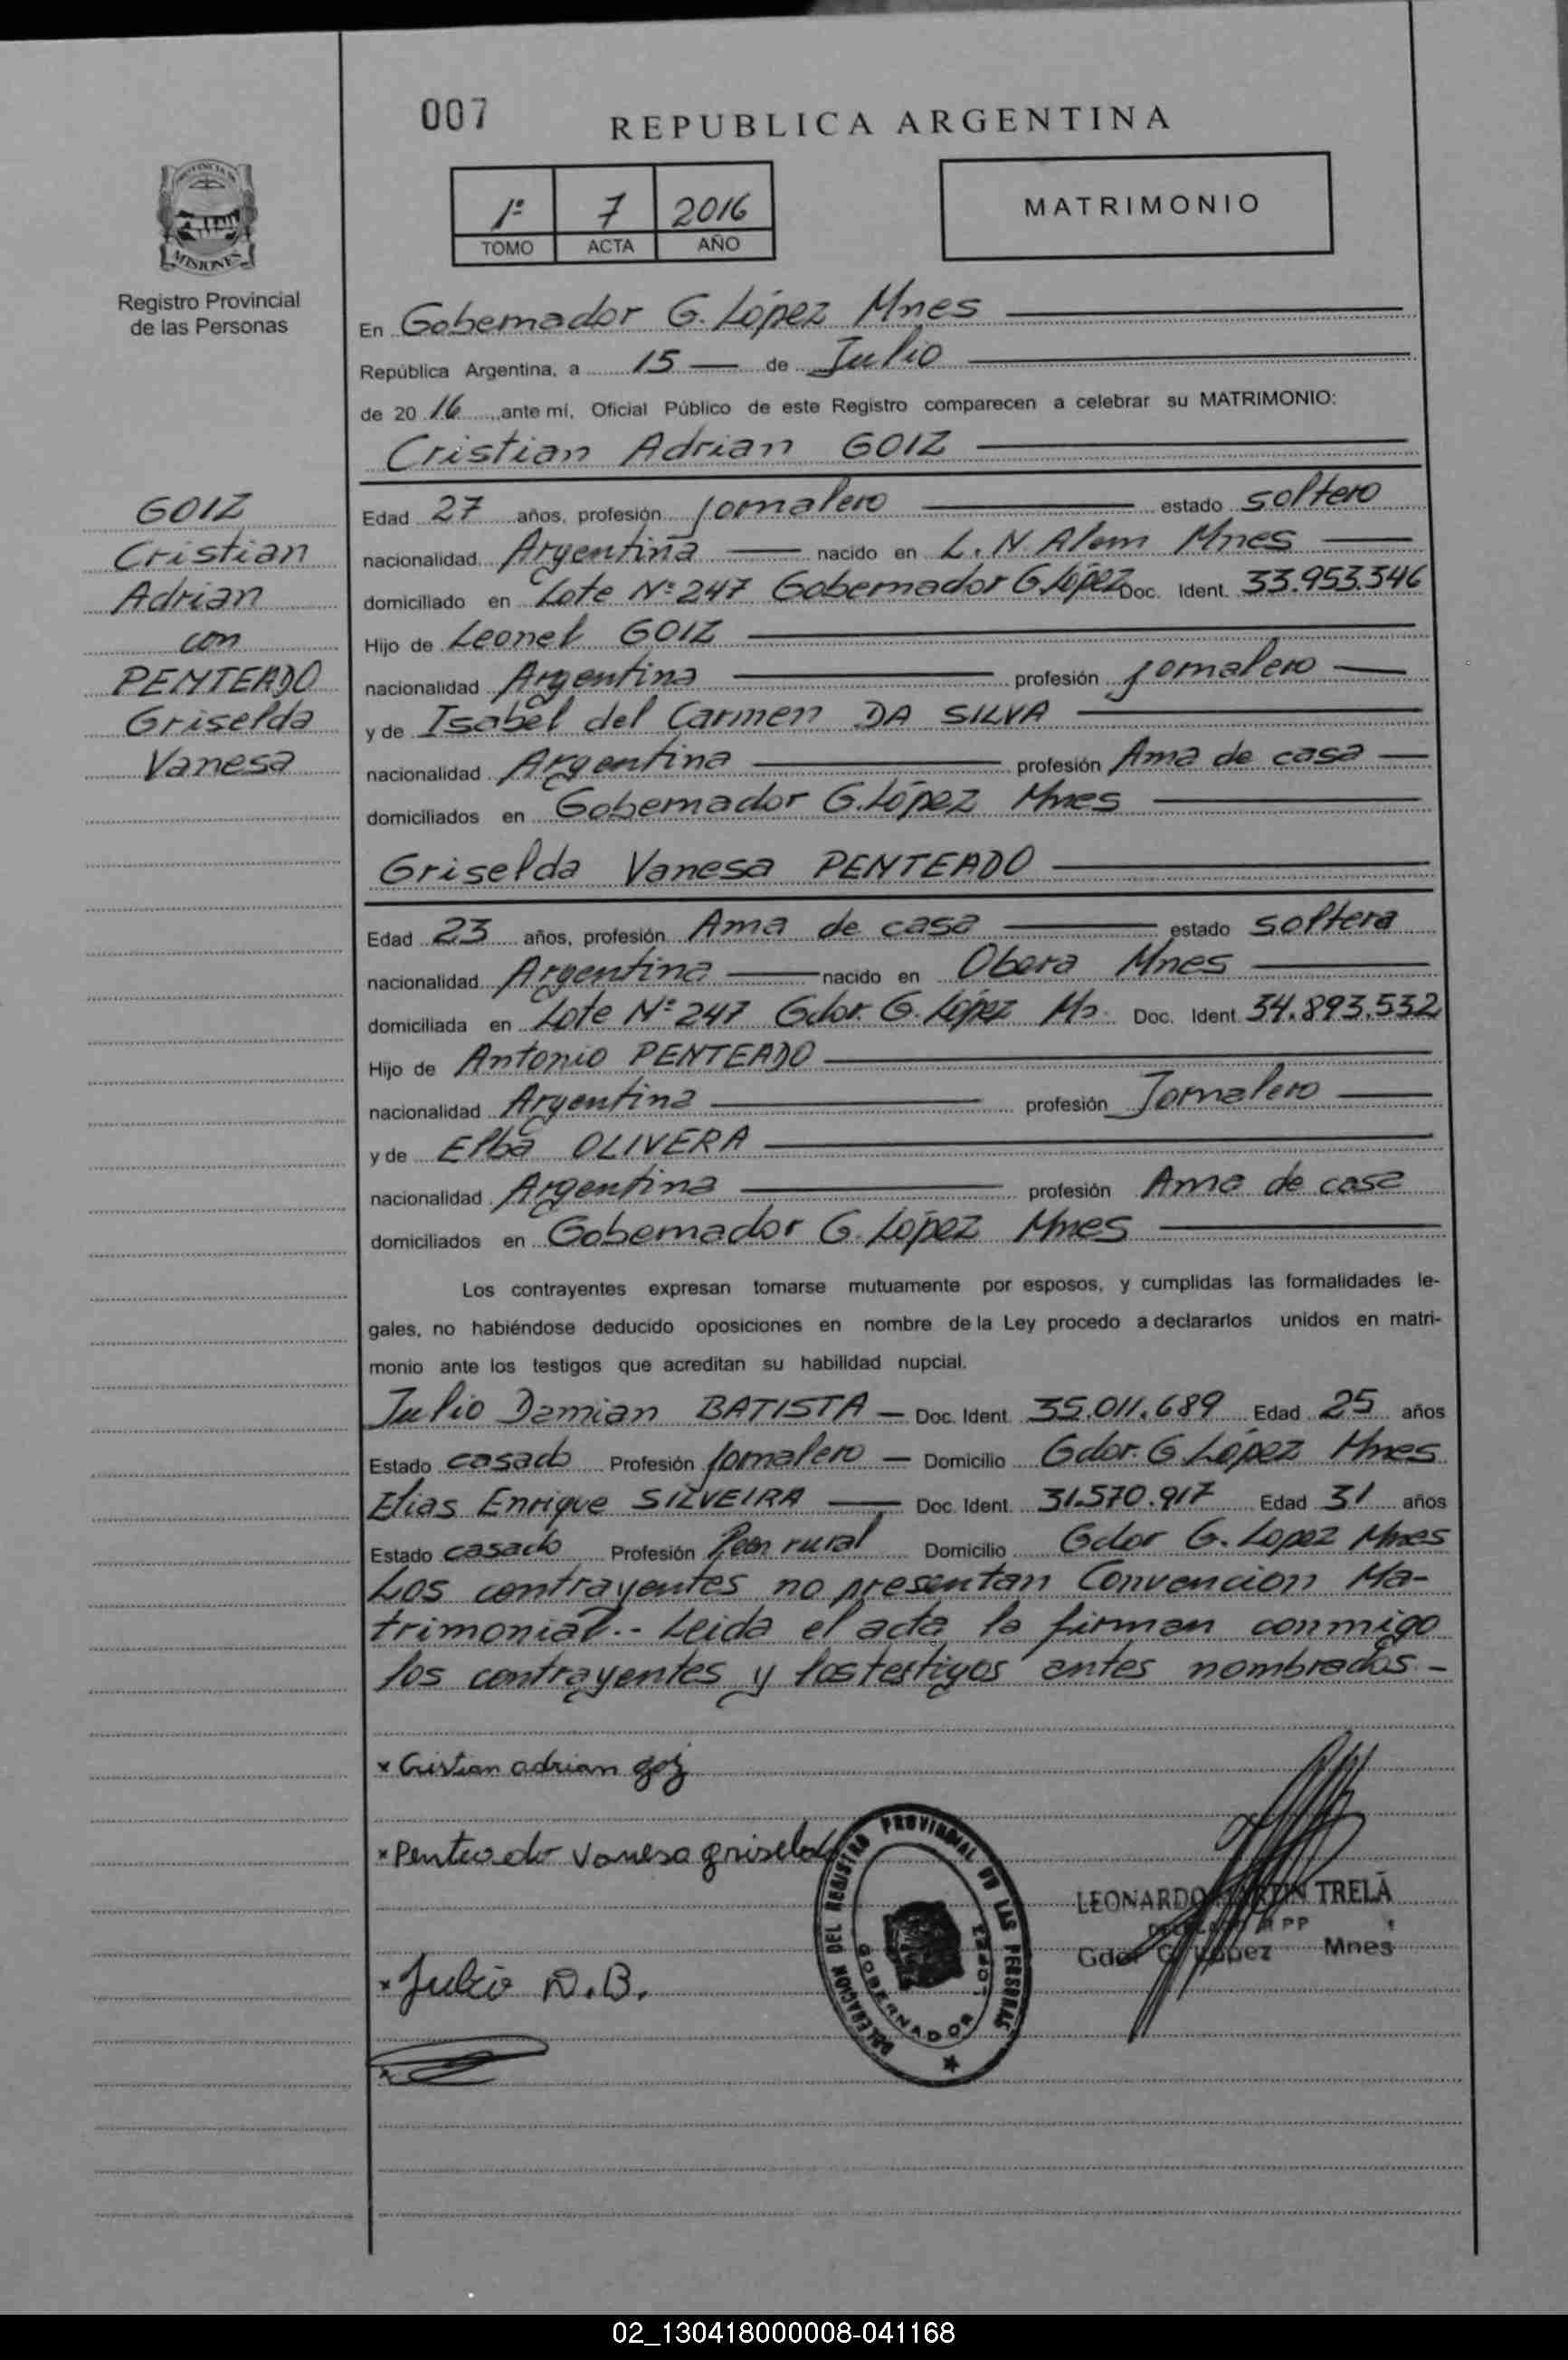 007
REPUBLICA ARGENTINA
1º 7 2016
TOMO ACTA AÑO
MATRIMONIO
PROVINCIA DE
MISIONES
Registro Provincial
de las Personas
En Gobernador G. López Mnes
República Argentina, a 15 de Julio
de 20 16 ante mí, Oficial Público de este Registro comparecen a celebrar su MATRIMONIO:
Cristian Adrian GOIZ
GOIZ
Cristian
Adrian
con
PENTEADO
Griselda
Vanesa
Edad 27 años, profesión jornalero estado soltero
nacionalidad Argentina nacido en L. N. Alem Mnes
domiciliado en Lote Nº 247 Gobernador G. López Doc. Ident. 33.953.346
Hijo de Leonel GOIZ
nacionalidad Argentina profesión jornalero
y de Isabel del Carmen DA SILVA
nacionalidad Argentina profesión Ama de casa
domiciliados en Gobernador G. López Mnes
Griselda Vanesa PENTEADO
Edad 23 años, profesión Ama de casa estado soltera
nacionalidad Argentina nacido en Obera Mnes
domiciliada en Lote Nº 247 Gdor. G. López Ms. Doc. Ident. 34.893.532
Hijo de Antonio PENTEADO
nacionalidad Argentina profesión Jornalero
y de Elba OLIVERA
nacionalidad Argentina profesión Ama de casa
domiciliados en Gobernador G. López Mnes
Los contrayentes expresan tomarse mutuamente por esposos, y cumplidas las formalidades le-
gales, no habiéndose deducido oposiciones en nombre de la Ley procedo a declararlos unidos en matri-
monio ante los testigos que acreditan su habilidad nupcial.
Julio Damian BATISTA - Doc. Ident. 35.011.689 Edad 25 años
Estado casado Profesión jornalero - Domicilio Gdor. G. López Mnes
Elias Enrique SILVEIRA Doc. Ident. 31.570.917 Edad 31 años
Estado casado Profesión Peon rural Domicilio Gdor G. Lopez Mnes
Los contrayentes no presentan Convencion Ma-
trimonial.- Leida el acta la firman conmigo
los contrayentes y los testigos antes nombrados.-
x Cristian adrian goiz
x Penteado Vanesa griselda
x Julio D.B.
x
DELEGACION DEL REGISTRO PROVINCIAL DE LAS PERSONAS
GOBERNADOR LOPEZ
LEONARDO MARTIN TRELA
DELEGADO R P P
Gdor G. Lopez Mnes
02_130418000008-041168